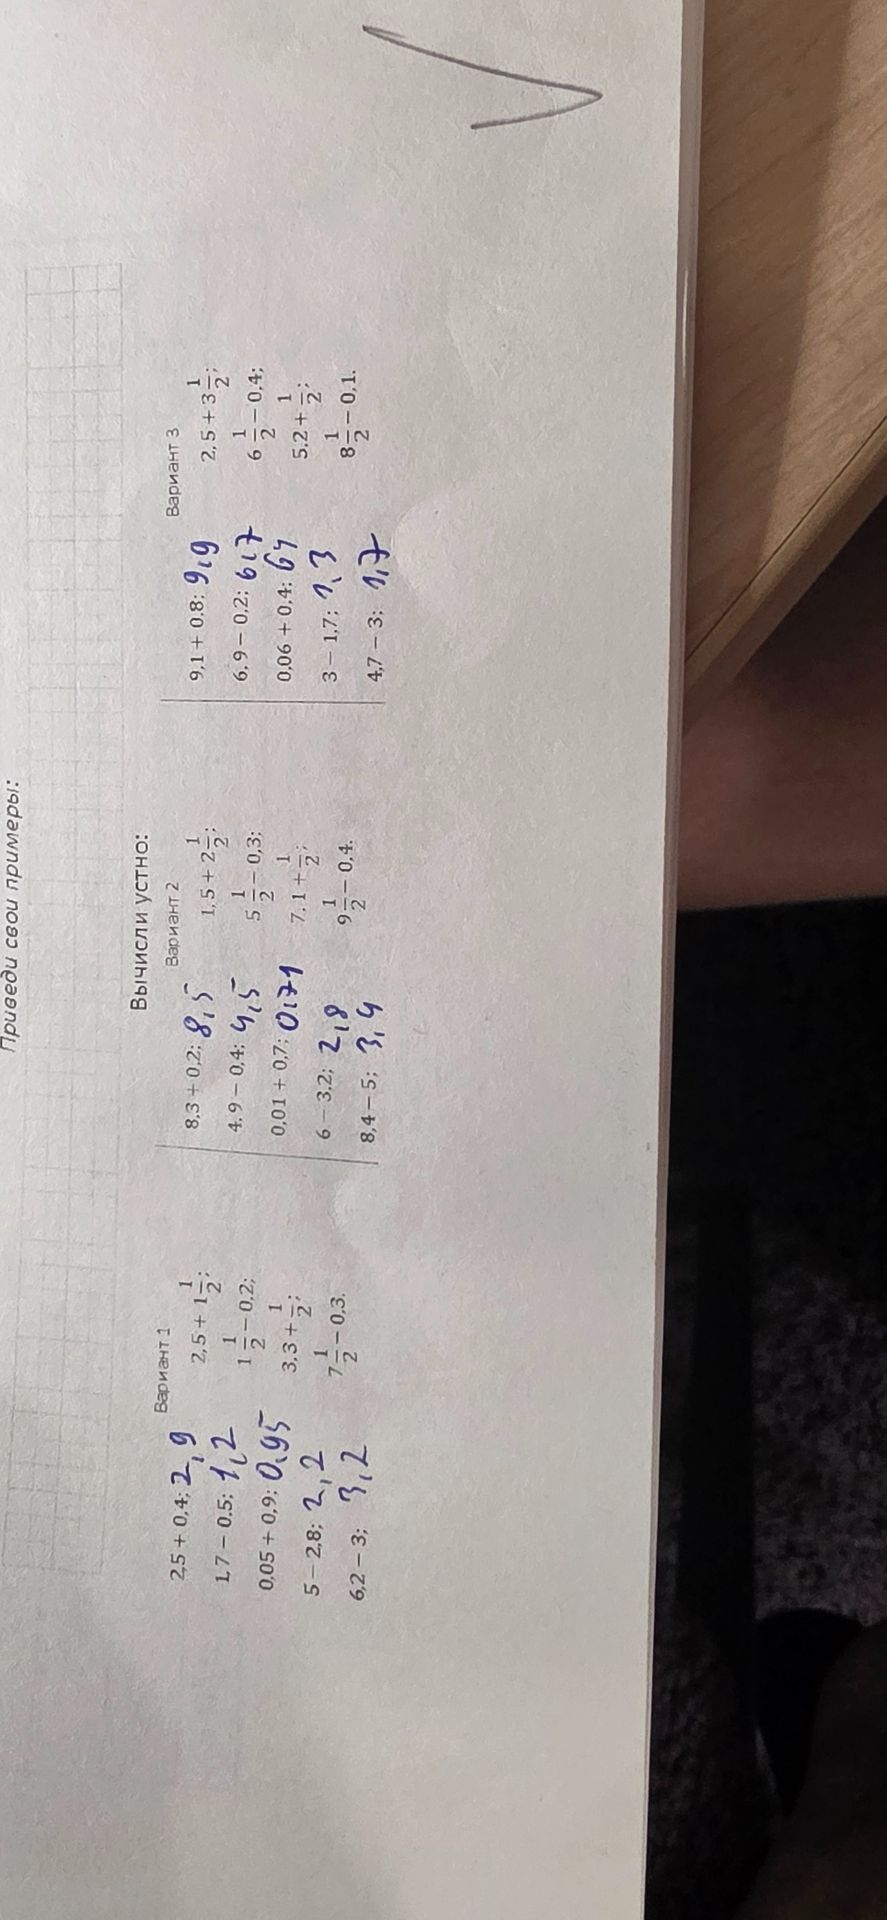 Приведи свои примеры:
Вычисли устно:
Вариант 1
2,5 + 0,4; 2,9
1,7 – 0,5; 1,2
0,05 + 0,9; 0,95
5 – 2,8; 2,2
6,2 – 3; 3,2
2,5 + 1 1/2;
1 1/2 – 0,2;
3,3 + 1/2;
7 1/2 – 0,3.
Вариант 2
8,3 + 0,2; 8,5
4,9 – 0,4; 4,5
0,01 + 0,7; 0,71
6 – 3,2; 2,8
8,4 – 5; 3,4
1,5 + 2 1/2;
5 1/2 – 0,3;
7,1 + 1/2;
9 1/2 – 0,4.
Вариант 3
9,1 + 0,8; 9,9
6,9 – 0,2; 6,7
0,06 + 0,4; 64
3 – 1,7; 1,3
4,7 – 3; 1,7
2,5 + 3 1/2;
6 1/2 – 0,4;
5,2 + 1/2;
8 1/2 – 0,1.